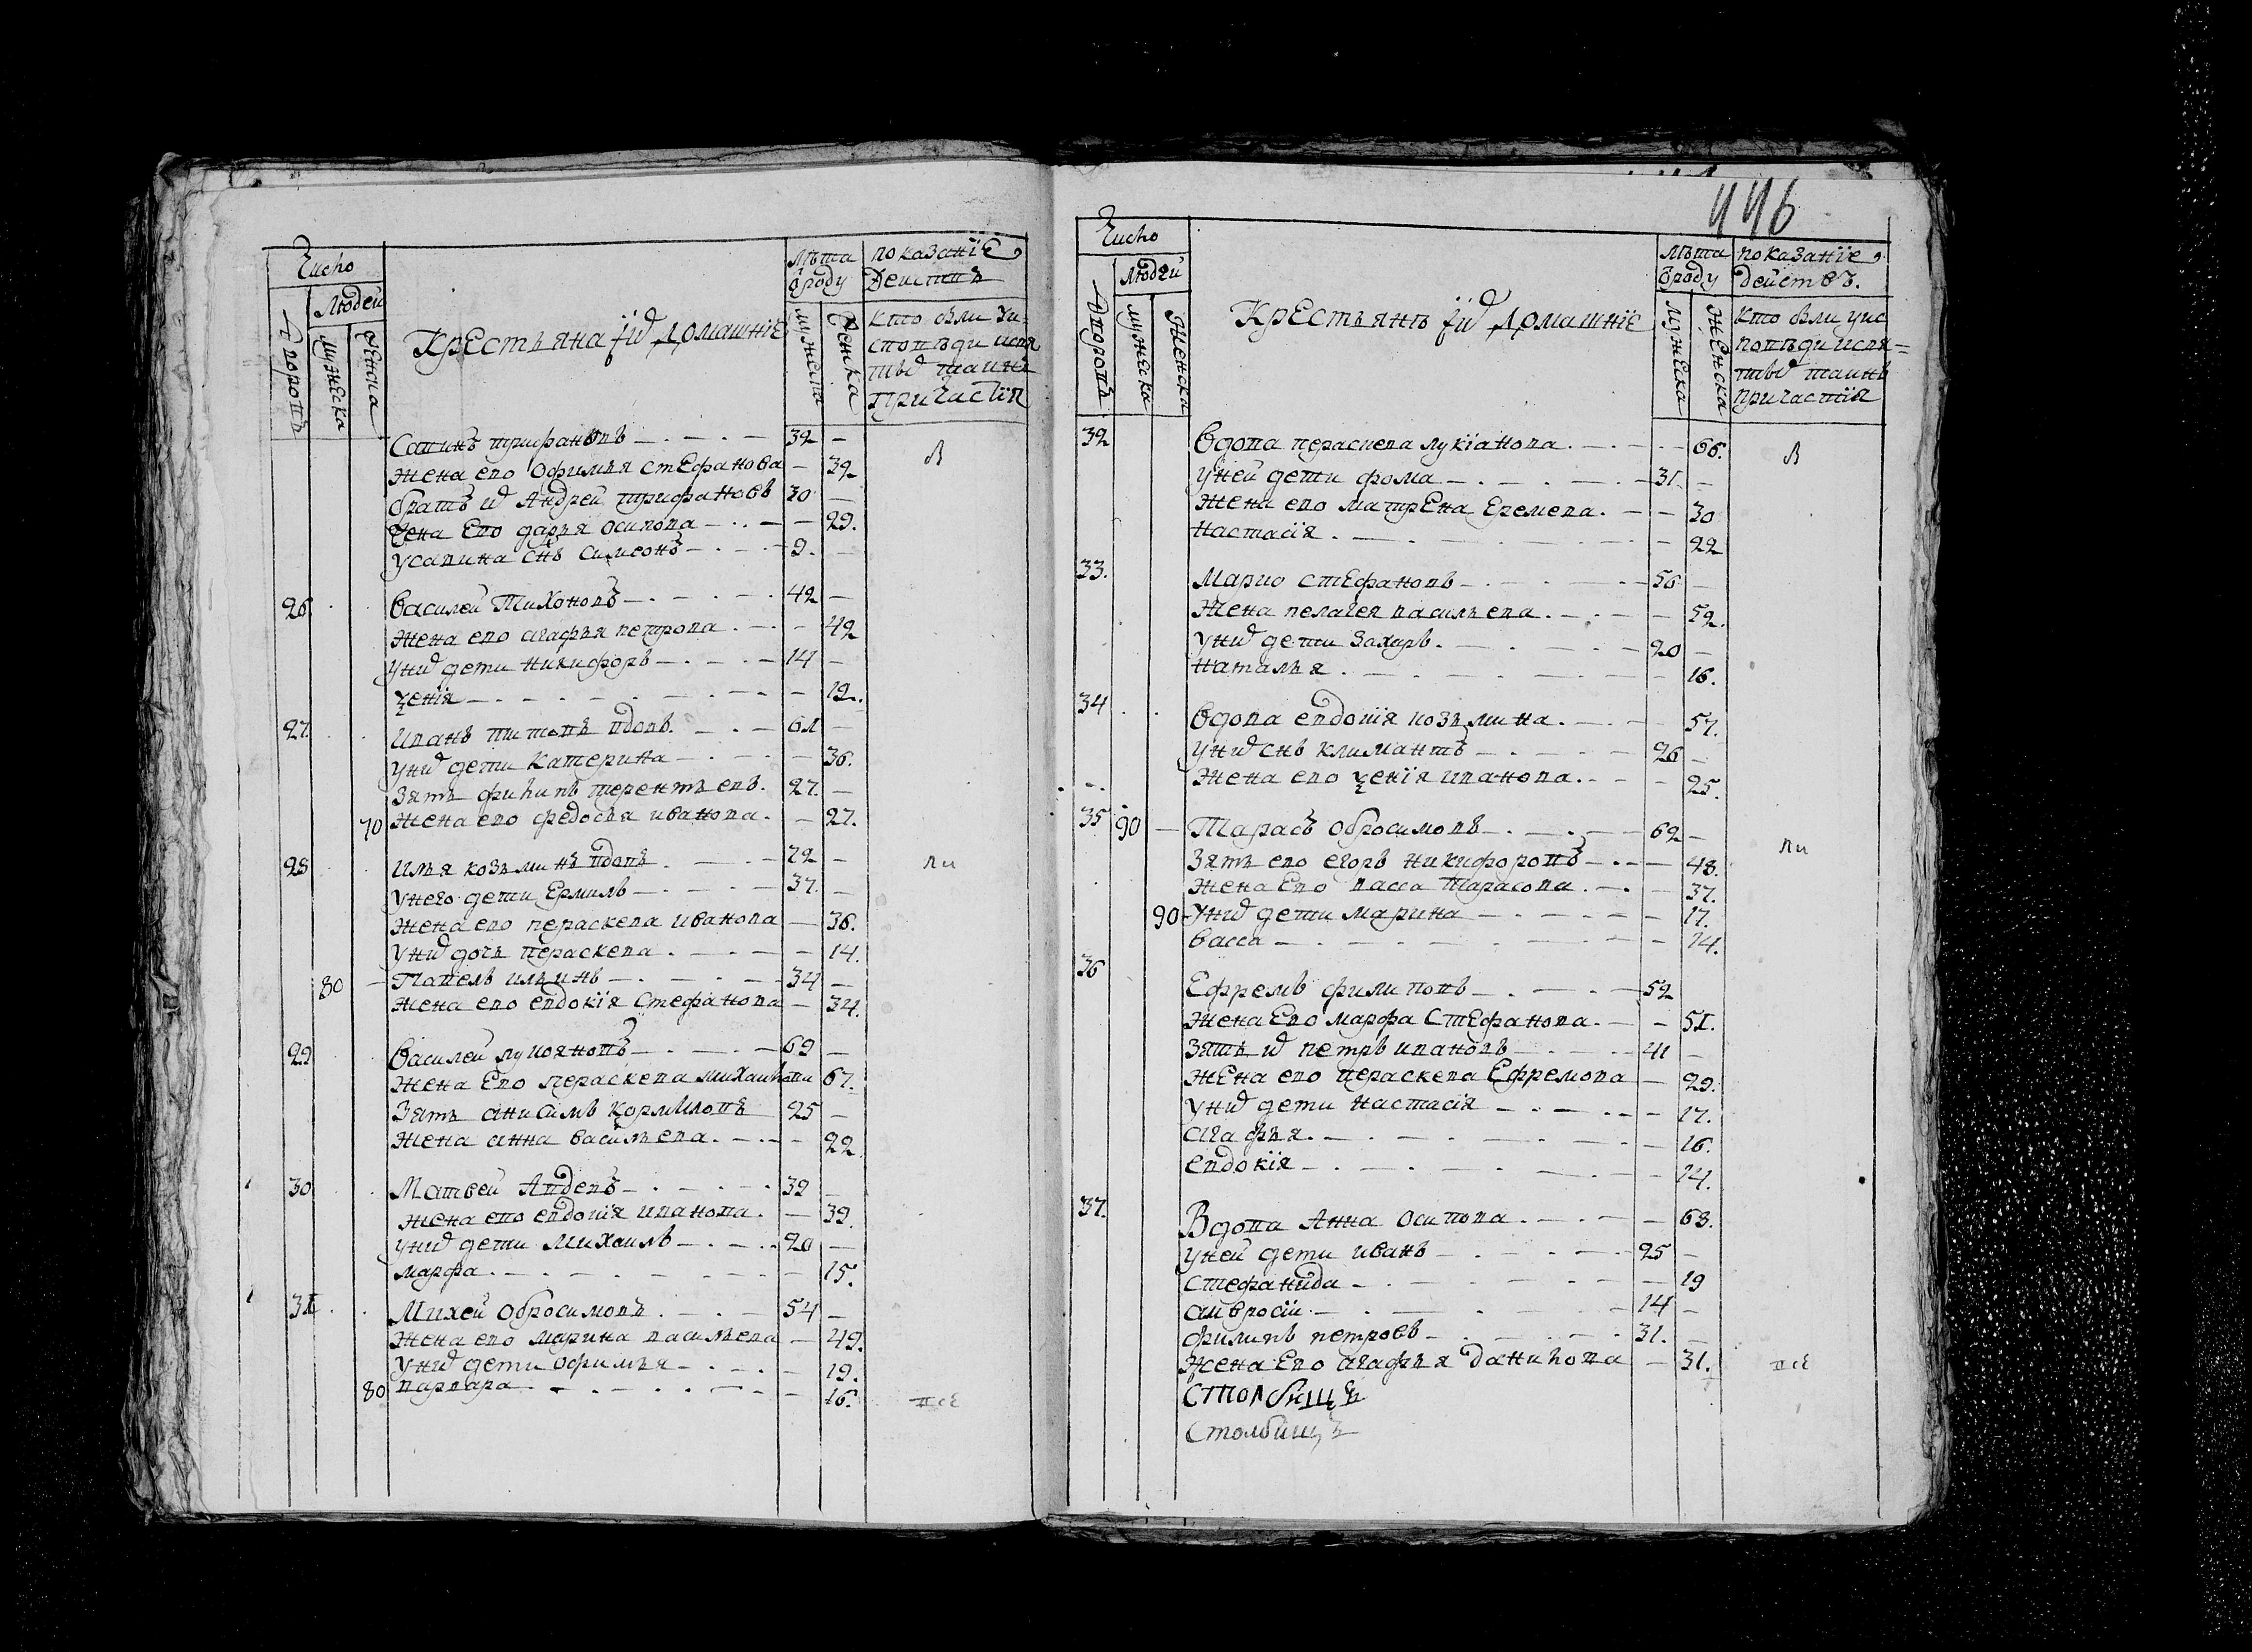 Число
Людей
Дворовъ
мужеска
женска
Крестьяна ї их домашнїе
Лѣта
ѿроду
мужеска
женска
показанїе
действъ
кто были уи=
споведи исвя
тых таинъ
Причастїя
Савинъ трифановъ 32
жена ево Офимья стефанова 32
братъ их Андрей трифановъ 30
жена Ево дарья осипова 29.
усавина снъ симеонъ 9.
26 Василей Тихоновъ 42
жена ево агафья петрова 42
уних дети никифоръ 14
ѯенїя 12.
27. Иванъ титовъ вдовъ 61
уних дети катерина 36.
Зять филипъ терентьевъ. 27.
70 жена ево федосья иванова. 27.
28 Илья козьминъ вдовъ 72
унего дети Ермилъ 37.
жена ево пераскева иванова 36.
уних дочь пераскева 14.
80 Павелъ ильинъ 34
жена ево евдокїя Стефанова 34.
29 Василей лукояновъ 69
жена Ево пераскева михаилова 67.
Зять анисимъ кормиловъ 25
жена анна васильева. 22
30 Матвей Авдевъ 39
жена ево евдокїя иванова. 39.
уних дети михаилъ 20
марфа 15.
31. Михей обросимовъ 54
жена ево марина васильева 49.
уних дети офимья 19.
80 варвара 16.
все
446
Число
Людей
Дворовъ
мужеска
женска
Крестьянъ ї их домашнїе
Лѣта
ѿроду
мужеска
женска
показанїе
действъ.
кто были уис
поведи исвя=
тых таинъ
причастїя
32 Вдова пераскева лукїанова. 66.
уней дети фома 31.
жена ево матрена Еремева. 30
настасїя 22
33. Марко стефановъ 56
жена пелагея васильева. 52.
уних дети захаръ. 20
наталья 16.
34 Вдова евдокїя козьмина. 57.
уних снъ климантъ 26
жена ево ѯенїя иванова. 25.
35 90 Тарасъ обросимовъ 62
Зять ево егоръ никифоровъ 48.
жена Ево васса Тарасова. 37.
90 уних дети марина 17.
васса 14.
36 Ефремъ филиповъ 52
жена Ево марфа Стефанова. 51.
Зять их петръ ивановъ 41
жена ево пераскева Ефремова 29.
уних дети настасїя 17.
агафья. 16.
евдокїя 14.
37. Вдова Анна осипова. 68.
уней дети иванъ 25
стефанида 19
амвросїи 14
филипъ петровъ 31.
жена Ево агафья данилова 31.
все
Столбище
Столбищъ